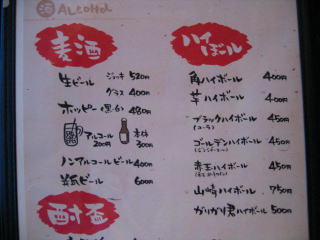 ALCOHOL
麦酒
生ビール ジョッキ 520円
グラス 400円
ホッピー(黒・白) 480円
アルコール 200円
本体 300円
ノンアルコールビール 400円
瓶ビール 600円
酎
ハイボール
角ハイボール 400円
芋ハイボール 400円
ブラックハイボール 450円
(コーラ)
ゴールデンハイボール 450円
(ジンジャーエール)
赤玉ハイボール 450円
山崎ハイボール 750円
ガリガリ君ハイボール 500円